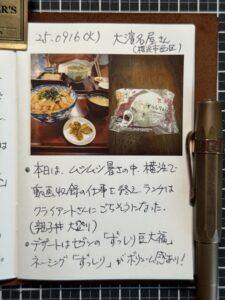 25.0916(火) 大濱名屋さん
(横浜市西区)
•本日は、ムシムシ暑さの中、横浜で
動画収録の仕事を終え、ランチは
クライアントさんにごちそうになった。
(親子丼 大盛り)
•デザートはセブンの「ずっしり豆大福」
ネーミング「ずっしり」がボリューム感あり!